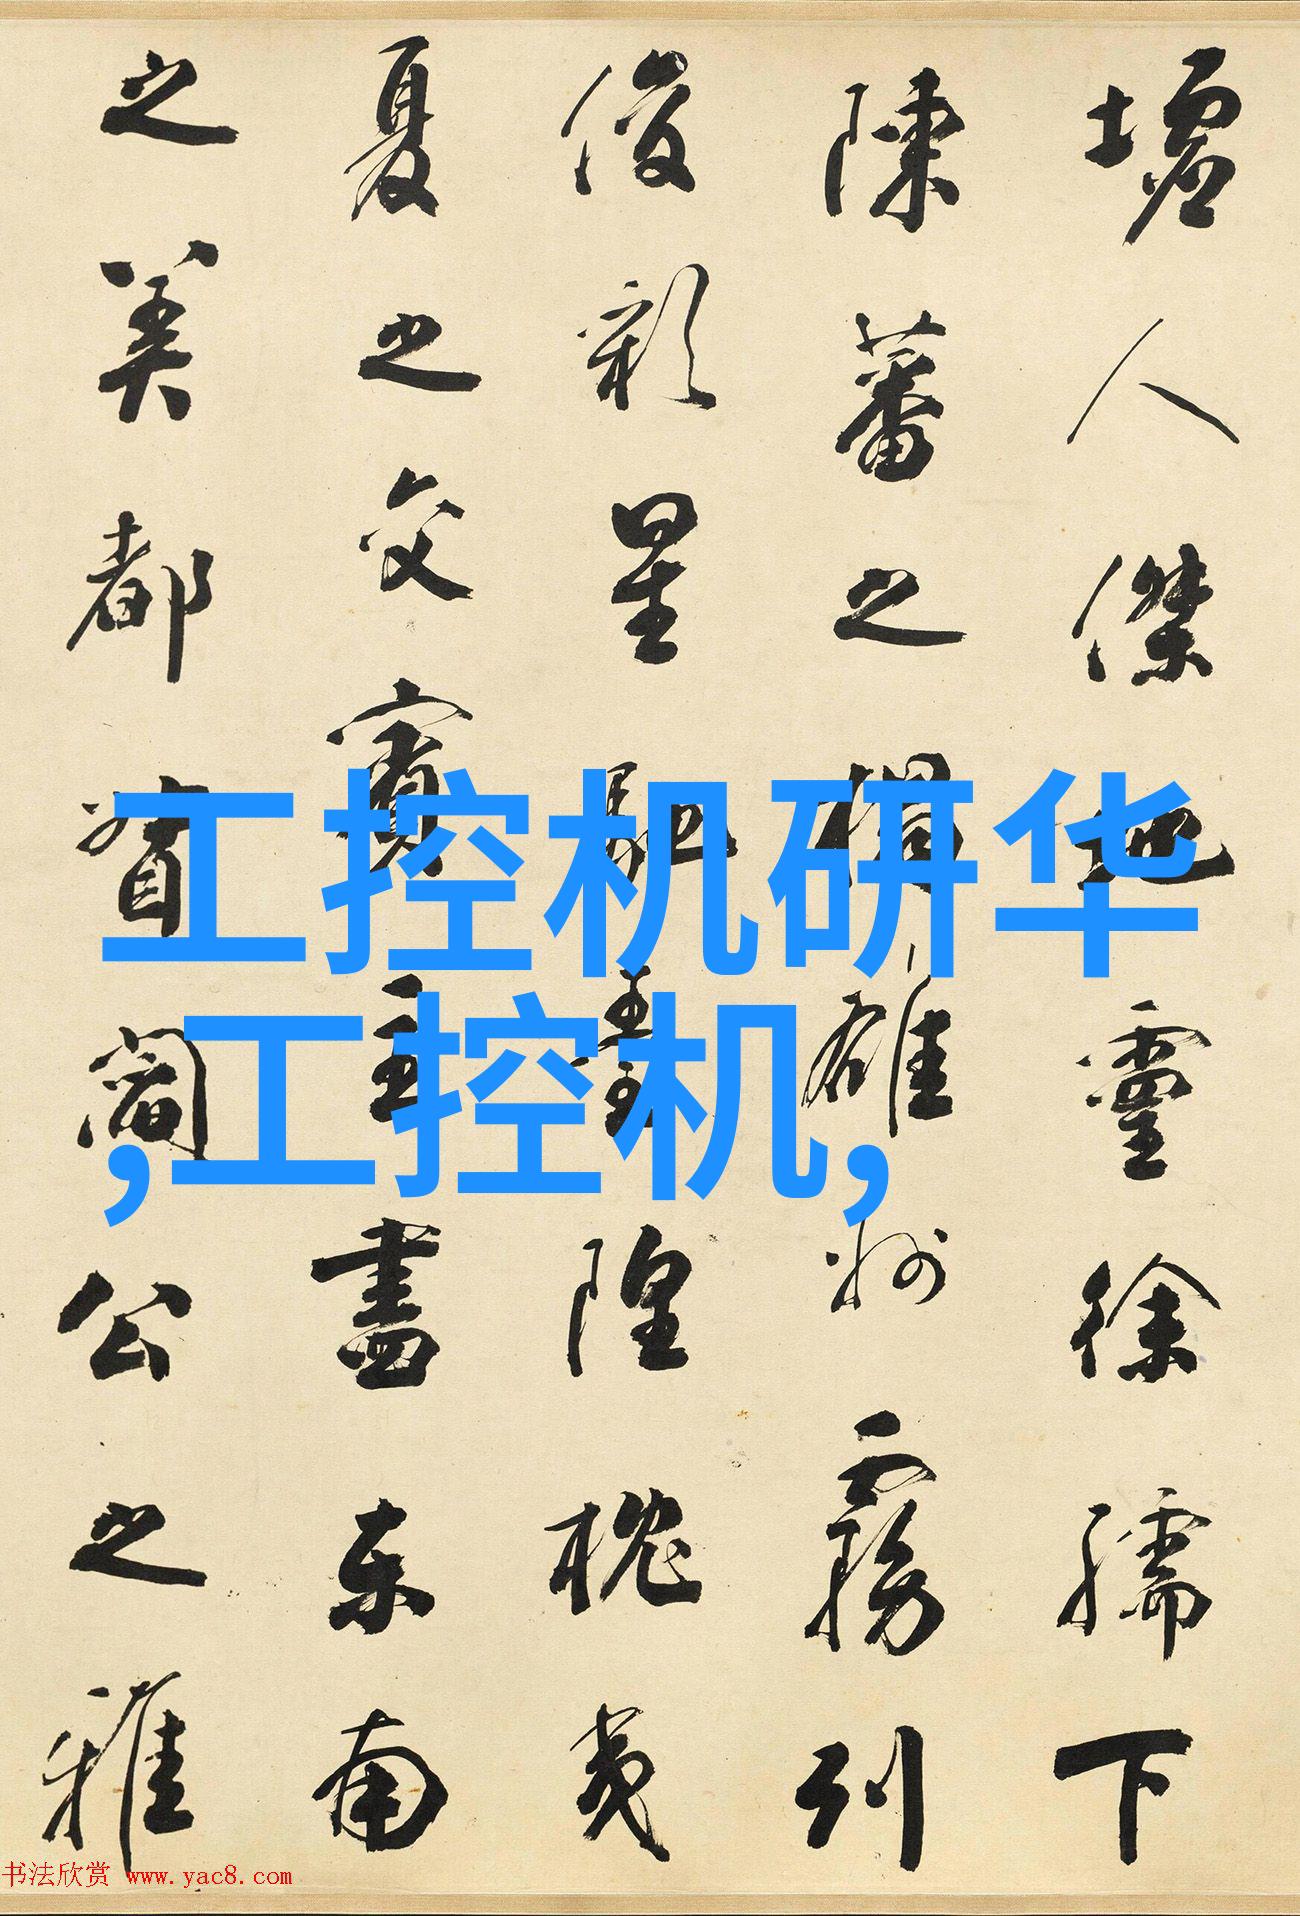 墟人傑地靈徐孺下
陳蕃之榻雄州霧列
俊彩星馳臺隍枕夷
夏之交賓主盡東南
之美都督閻公之雅
工控机研华
,工控机,
书法欣赏 www.yac8.com